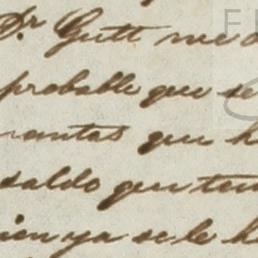 Dr Gutt me
probable que se
mantas que h
saldo que ten
ien ya se le ha